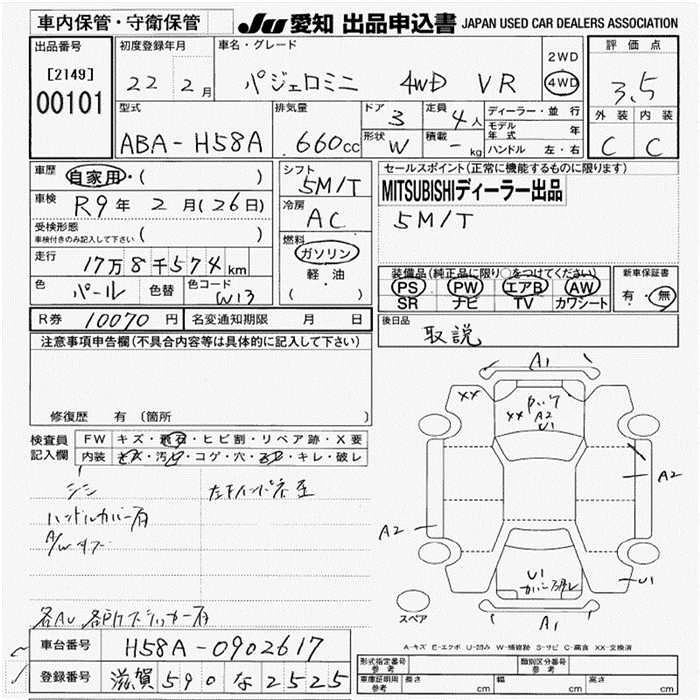 車内保管・守衛保管 JU 愛知 出品申込書 JAPAN USED CAR DEALERS ASSOCIATION
出品番号
[2149]
00101
初度登録年月
22 2月
車名・グレード
パジェロミニ 4WD VR
2WD
4WD
評価点
3.5
外装 内装
C C
型式
ABA-H58A
排気量
.660cc
ドア 3
形状 W
定員 4人
積載 - kg
ディーラー・並行
モデル年式 年
ハンドル 左・右
車歴 自家用・( )
車検 R9年 2月(26日)
受検形態
車検付きのみ記入して下さい ( )
走行 17万8千574km
色 パール 色替 色コード W13
シフト
5M/T
冷房
AC
燃料
ガソリン
軽・油
( )
セールスポイント(正常に機能するものに限ります)
MITSUBISHIディーラー出品
5M/T
装備品(純正品に限り○をつけてください)
PS PW エアB AW
SR ナビ TV カワシート
新車保証書
有・無
R券 10070円 名変通知期限 月 日
後日品
取説
注意事項申告欄(不具合内容等は具体的に記入して下さい)
修復歴 有(箇所
検査員
記入欄
FW キズ・飛石・ヒビ割・リペア跡・X要
内装 キズ・汚れ・コゲ・穴・キレ・破レ
ハンドルカバー有
A1
XX
XX A2
U1
A2
A2
U1
U1
A1
スペア
A-キズ E-エクボ U-凹み W-補修跡 S-サビ C-腐食 XX-交換済
車台番号 H58A-0902617
登録番号 滋賀 590 な 2525
形式指定番号
参考
類別区分番号
参考
車庫証明用
参考
長さ cm 幅 cm 高さ cm